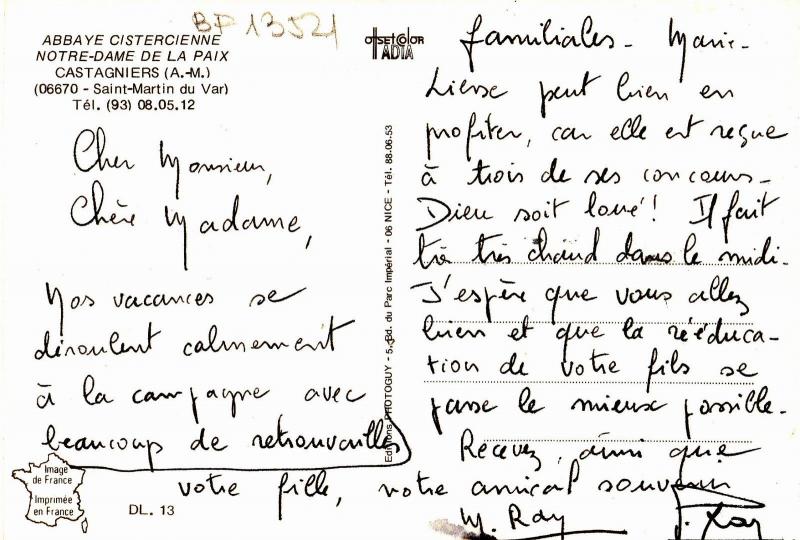 BP 13521
ABBAYE CISTERCIENNE
NOTRE-DAME DE LA PAIX
CASTAGNIERS (A.-M.)
(06670 - Saint-Martin du Var)
Tél. (93) 08.05.12
OFFSET COLOR
ADIA
Cher Monsieur,
Chère Madame,
Nos vacances se
déroulent calmement
à la campagne avec
beaucoup de retrouvailles
familiales - Marie-
Liesse peut bien en
profiter, car elle est reçue
à trois de ses concours -
Dieu soit loué ! Il fait
très chaud dans le midi -
J'espère que vous allez
bien et que la rééduca-
tion de votre fils se
passe le mieux possible -
Recevez, ainsi que
votre fille, notre amical souvenir
M. Ray
J. Ray
Editions PHOTOGUY - 5, Bd. du Parc Impérial - 06 NICE - Tél. 88.06.53
Image
de France
Imprimée
en France
DL. 13